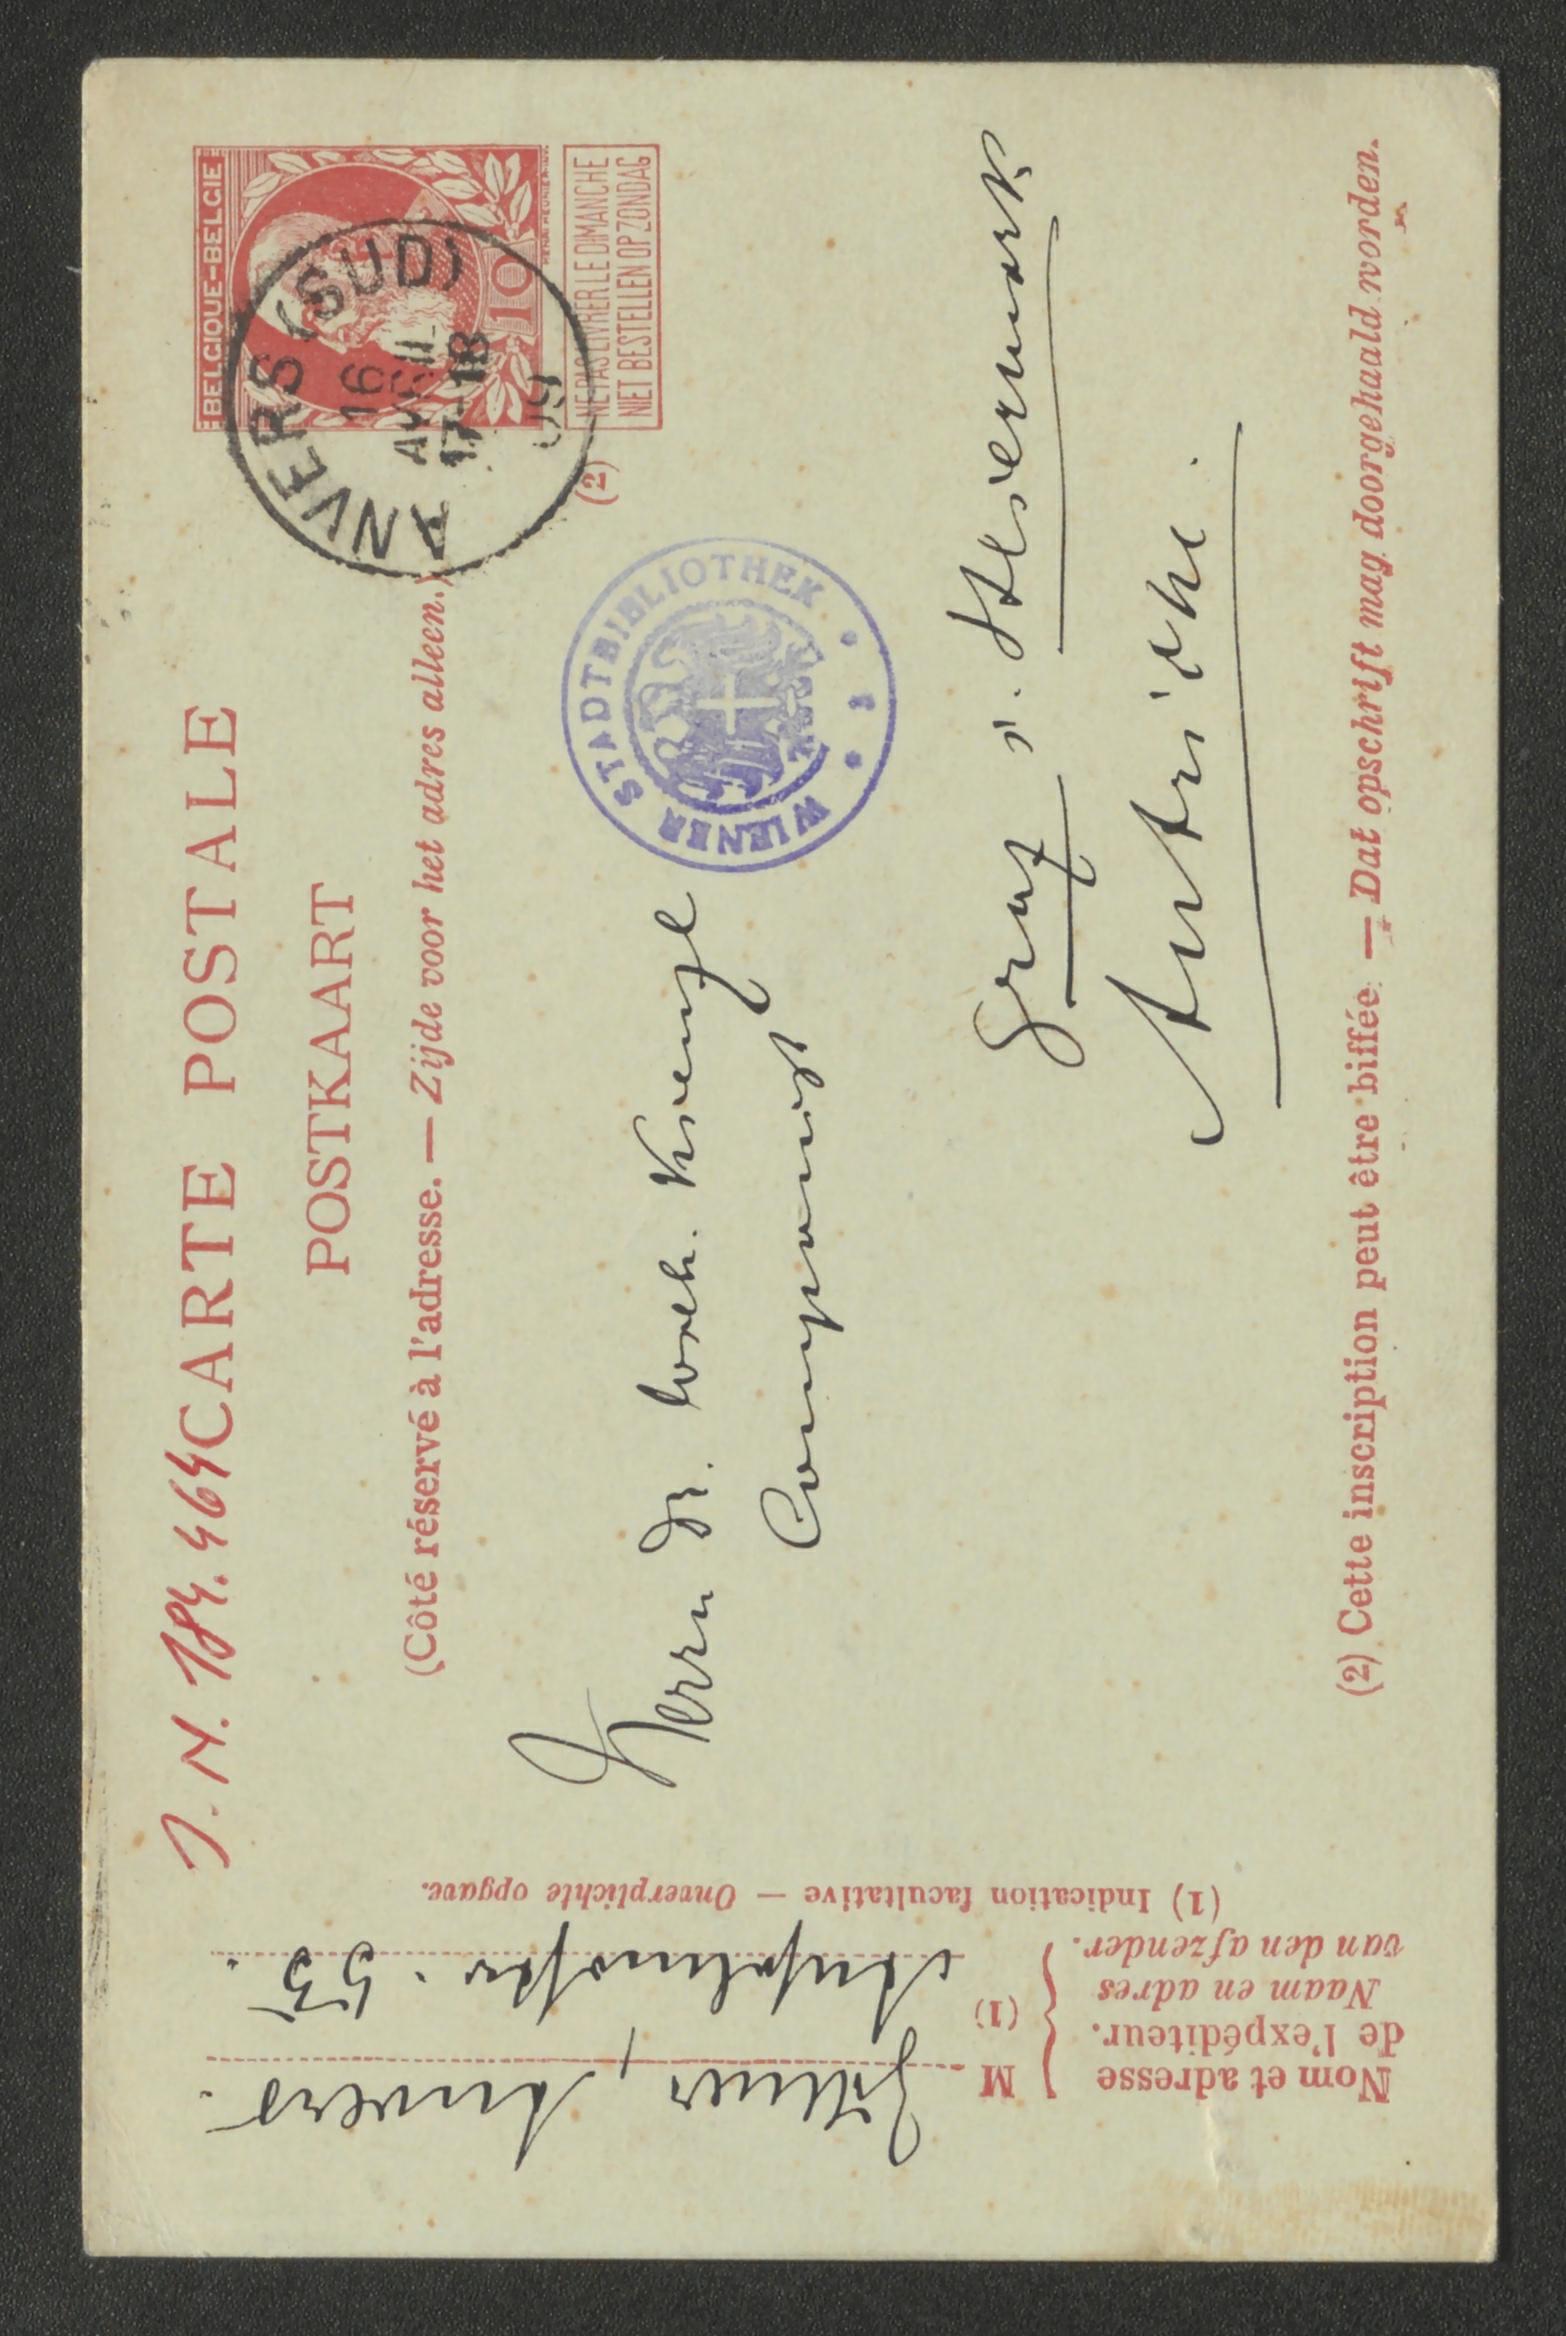 J. N. 184.464
CARTE POSTALE
POSTKAART
(Côté réservé à l'adresse. — Zijde voor het adres alleen.)
BELGIQUE-BELGIE
10
NE PAS LIVRER LE DIMANCHE
NIET BESTELLEN OP ZONDAG
(2)
ANVERS (SUD)
16
AVRIL
17-18
09
WIENER STADTBIBLIOTHEK
Herrn Dr. Kienzl
Componist
Graz i. Steiermark
Autriche.
(2) Cette inscription peut être biffée. — Dat opschrift mag doorgehaald worden.
Nom et adresse
de l'expéditeur.
Naam en adres
van den afzender.
M
(1)
Anvers.
55.
(1) Indication facultative — Onverplichte opgave.